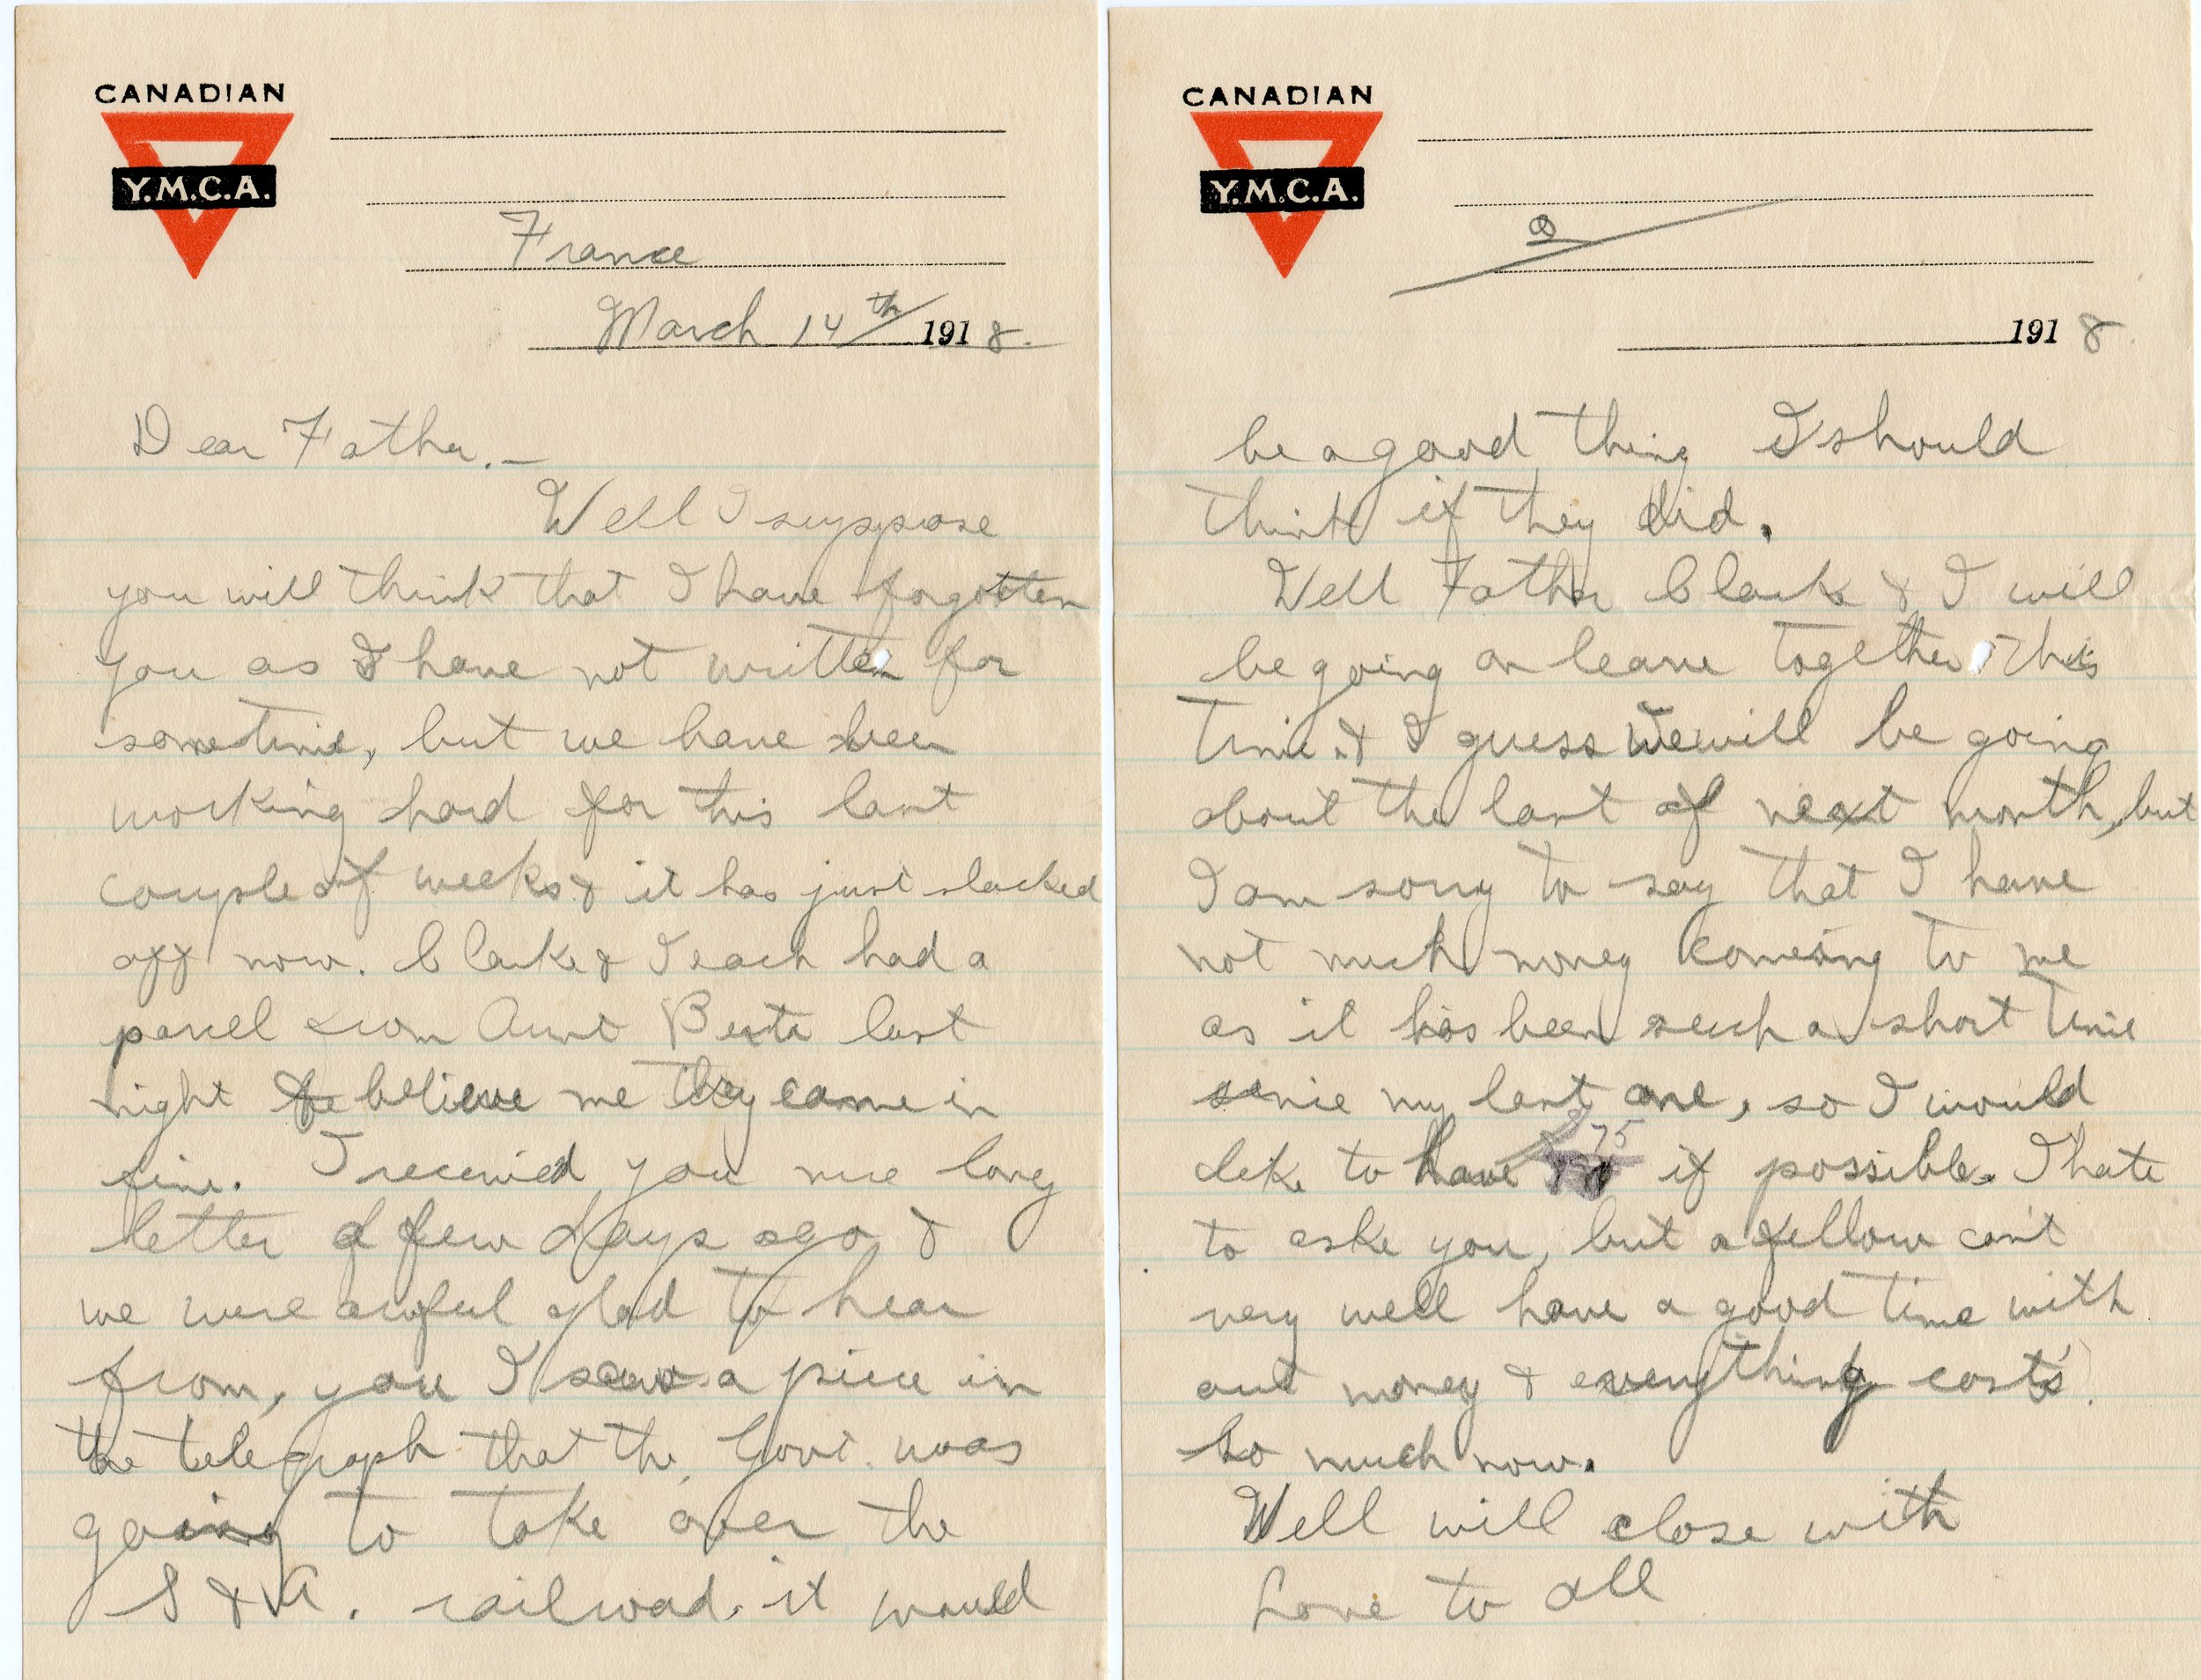 CANADIAN
Y.M.C.A.
France
March 14th 1918.
Dear Father.—
Well I suppose
you will think that I have forgotten
you as I have not written for
sometime, but we have been
working hard for this last
couple of weeks & it has just slacked
off now. Clark & I each had a
parcel from Aunt last
night & believe me they came in
fine. I received you nice long
letter a few days ago &
we were awful glad to hear
from, you I saw a piece in
the telegraph that the Govt. was
going to take over the
S & A. railroad. it would
CANADIAN
Y.M.C.A.
2
1918
be a good thing I should
think if they did.
Well Father Clark & I will
be going on leave together This
time & I guess we will be going
about the last of next month, but
I am sorry to say that I have
not much money comeing to me
as it has been such a short time
sence my last one, so I would
like to have $75 if possible. I hate
to aske you, but a fellow can't
very well have a good time with
out money & everything costs
so much now.
Well will close with
Love to all